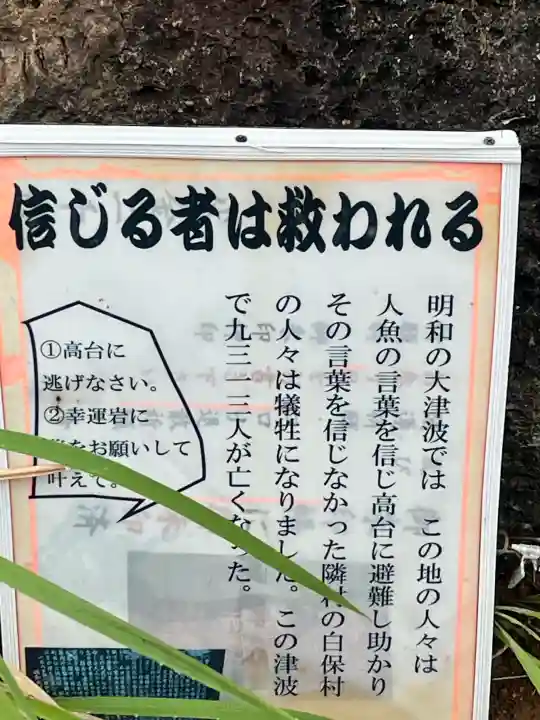 信じる者は救われる
明和の大津波では この地の人々は
人魚の言葉を信じ高台に避難し助かり
その言葉を信じなかった隣村の白保村
の人々は犠牲になりました。この津波
で九三一三人が亡くなった。
①高台に
逃げなさい。
②幸運岩に
をお願いして
叶えて。